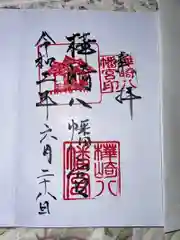 奉拝
樺崎八幡宮
樺崎八
幡宮
令和二年六月二十八日